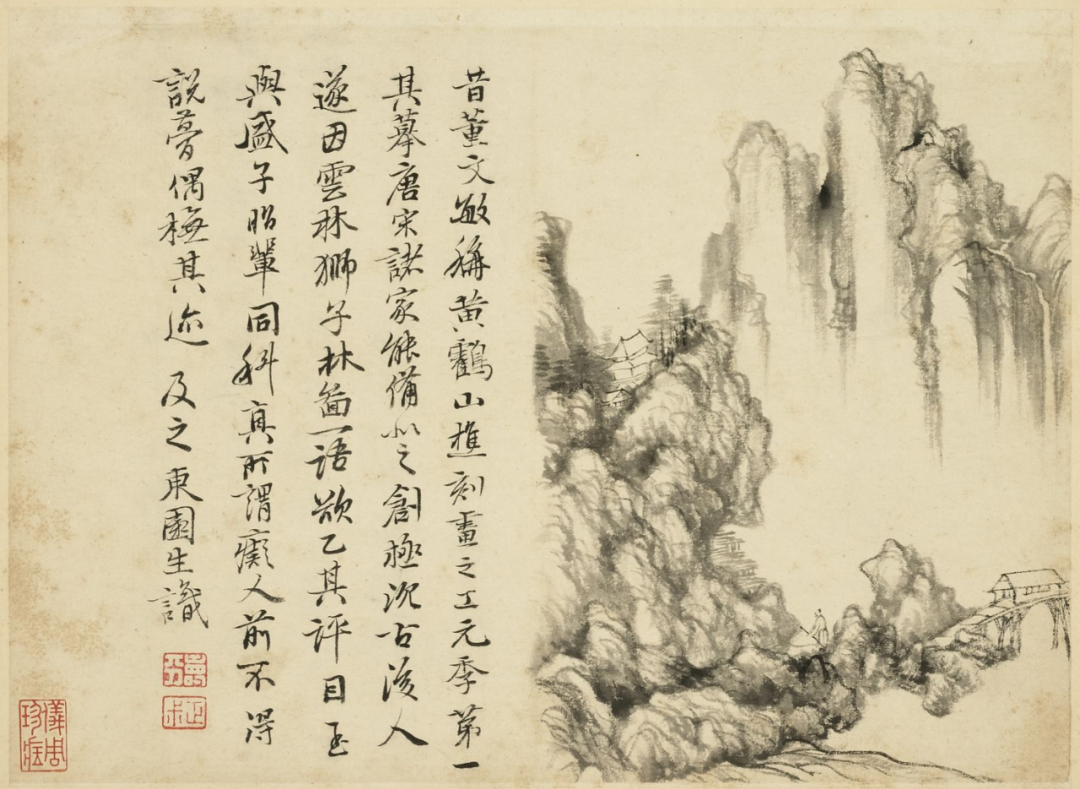 昔董文敏稱黄鶴山樵刻畫之工元季第一
其摹唐宋諸家能備北之創極沉古後人
遂因雲林獅子林圖一語欲乙其評目至
與盛子昭輩同科真所謂癡人前不得
說夢偶橅其迹 及之東園生識
儀周珍藏